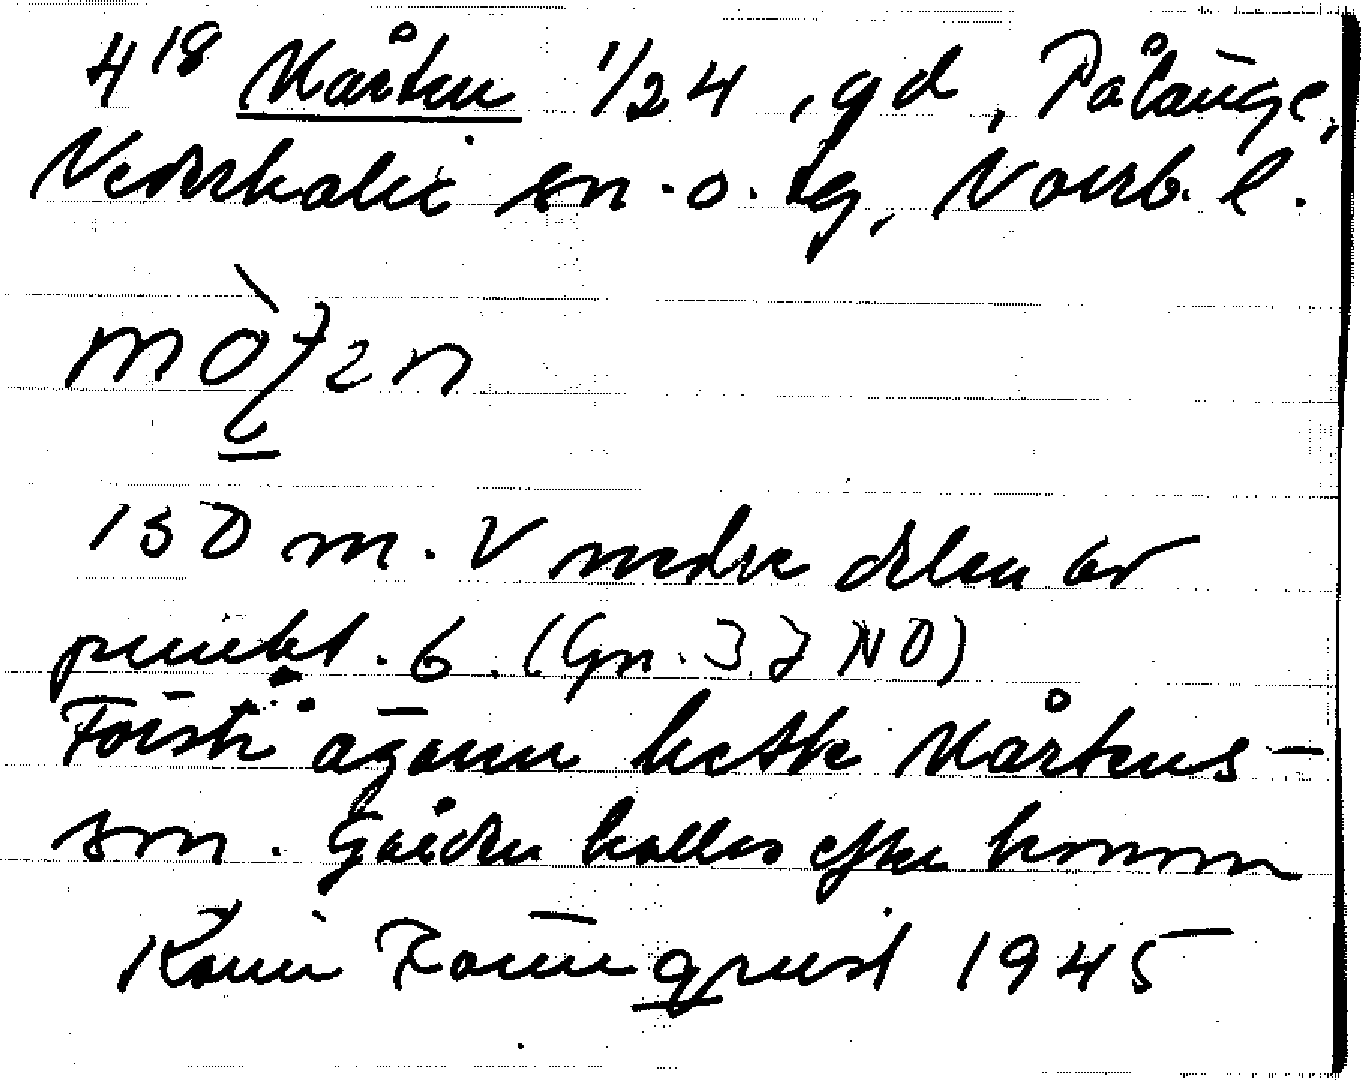 4¹⁸ Mårten 1/24, gd, Påläнge,
Nederkalix sn. o. tg, Norrb. l.
150 m. V nedre delen av
punkt. 6. (Gn. 37 NO)
Förste ägaren hette Mårtens-
son. Gården kallas efter honom
Karin Törnqvist 1945